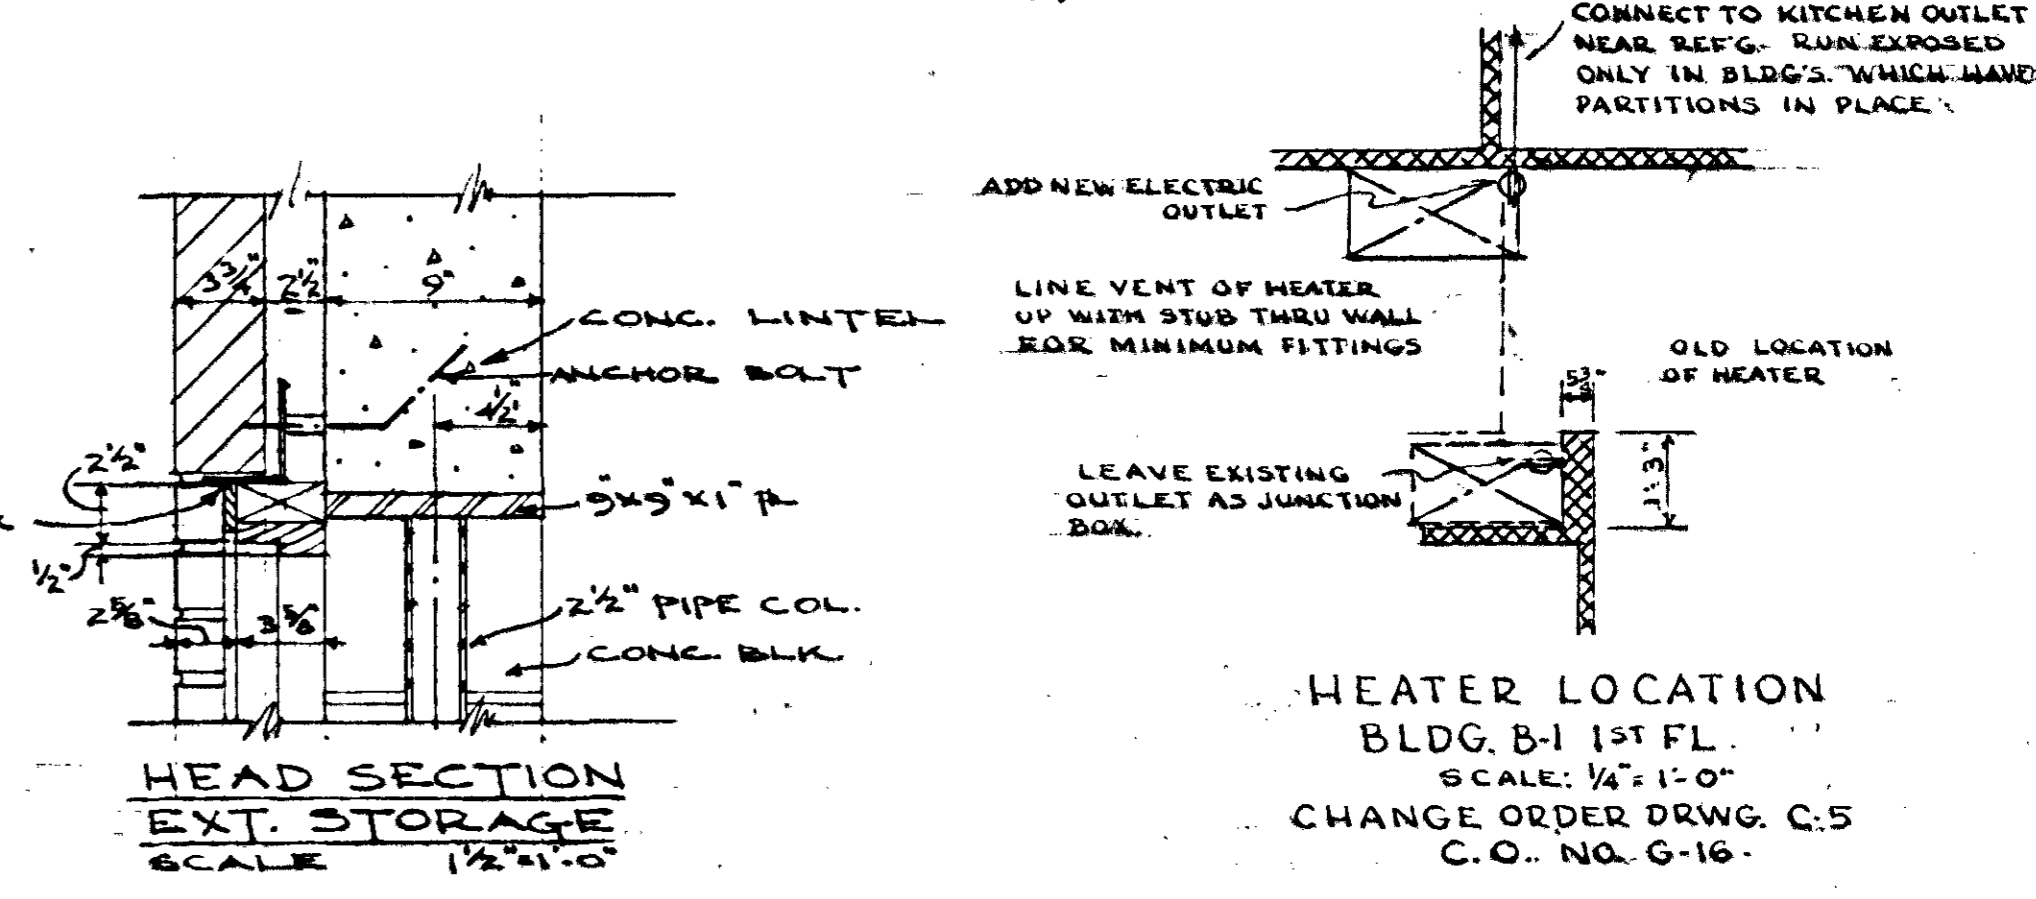 3 3/4"
2 1/2"
9"
CONC. LINTEL
ANCHOR BOLT
4 1/2"
2 1/2"
9"x9"x1" PL
1/2"
2 5/8"
3 5/8"
2 1/2" PIPE COL.
CONC. BLK.
HEAD SECTION
EXT. STORAGE
SCALE 1 1/2"=1'-0"
CONNECT TO KITCHEN OUTLET
NEAR REF'G. RUN EXPOSED
ONLY IN BLDG'S. WHICH HAVE
PARTITIONS IN PLACE
ADD NEW ELECTRIC
OUTLET
LINE VENT OF HEATER
UP WITH STUB THRU WALL
FOR MINIMUM FITTINGS
OLD LOCATION
OF HEATER
5 3/4"
1'-3"
LEAVE EXISTING
OUTLET AS JUNCTION
BOX.
HEATER LOCATION
BLDG. B-1 1ST FL.
SCALE: 1/4"=1'-0"
CHANGE ORDER DRWG. C-5
C.O. NO. G-16.